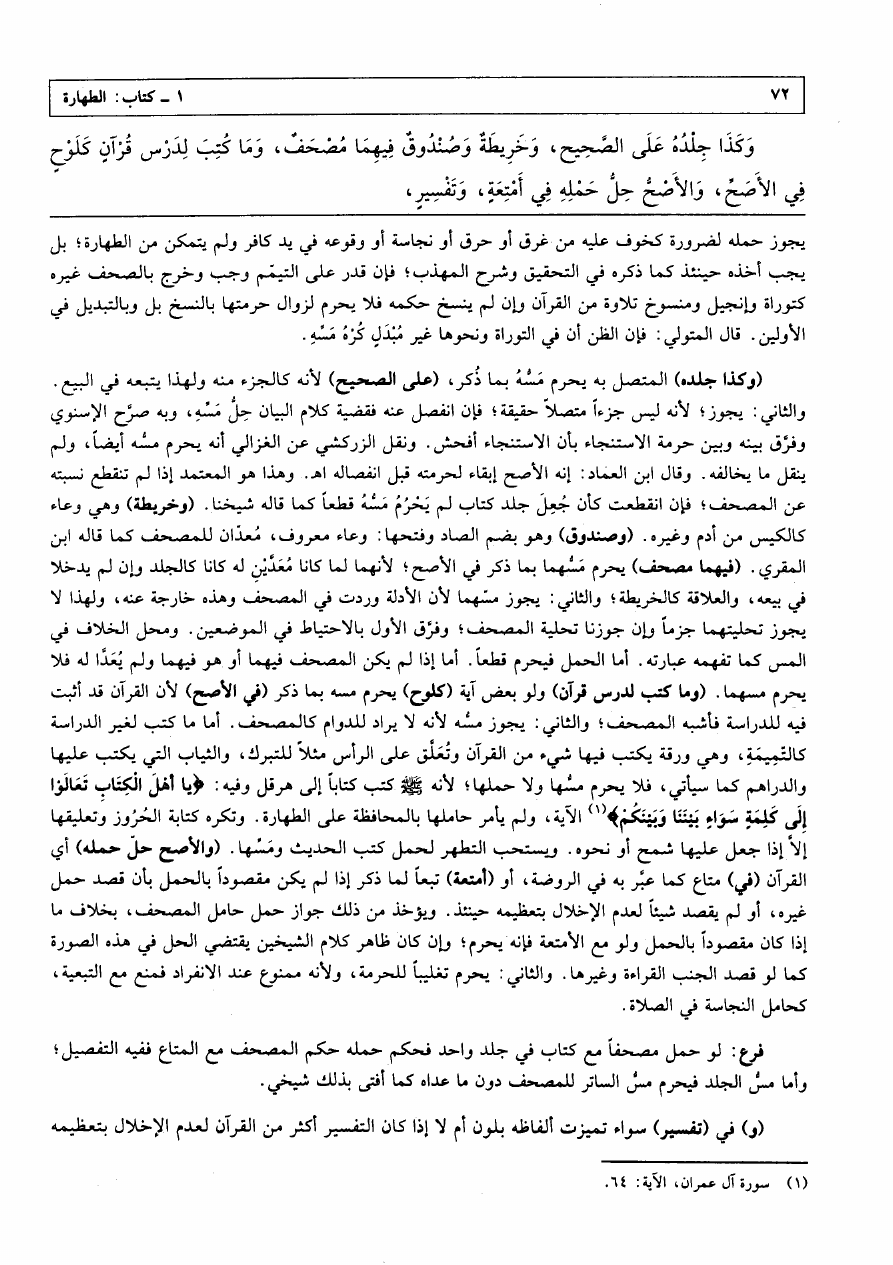 ٧٢
١ ـ كتاب: الطهارة
وَكَذَا جِلْدُهُ عَلَى الصَّحِيحِ، وَخَرِيطَةٌ وَصُنْدُوقٌ فِيهِمَا مُصْحَفٌ، وَمَا كُتِبَ لِدَرْسِ قُرْآنٍ كَلَوْحٍ
فِي الأَصَحِّ، وَالأَصَحُّ حِلُّ حَمْلِهِ فِي أَمْتِعَةٍ، وَتَفْسِيرٍ،
يجوز حمله لضرورة كخوف عليه من غرق أو حرق أو نجاسة أو وقوعه في يد كافر ولم يتمكن من الطهارة؛ بل
يجب أخذه حينئذ كما ذكره في التحقيق وشرح المهذب؛ فإن قدر على التيمّم وجب وخرج بالصحف غيره
كتوراة وإنجيل ومنسوخ تلاوة من القرآن وإن لم ينسخ حكمه فلا يحرم لزوال حرمتها بالنسخ بل وبالتبديل في
الأولين. قال المتولي: فإن الظن أن في التوراة ونحوها غير مُبْدَلٍ كُرْهُ مَسِّهِ.
(وكذا جلده) المتصل به يحرم مَسُّهُ بما ذُكر، (على الصحيح) لأنه كالجزء منه ولهذا يتبعه في البيع.
والثاني: يجوز؛ لأنه ليس جزءاً متصلاً حقيقة؛ فإن انفصل عنه فقضية كلام البيان حِلُّ مَسِّهِ، وبه صرَّح الإسنوي
وفرَّق بينه وبين حرمة الاستنجاء بأن الاستنجاء أفحش. ونقل الزركشي عن الغزالي أنه يحرم مسُّه أيضاً، ولم
ينقل ما يخالفه. وقال ابن العماد: إنه الأصح إبقاء لحرمته قبل انفصاله اهـ. وهذا هو المعتمد إذا لم تنقطع نسبته
عن المصحف؛ فإن انقطعت كأن جُعِلَ جلد كتاب لم يَحْرُمْ مَسُّهُ قطعاً كما قاله شيخنا. (وخريطة) وهي وعاء
كالكيس من أدم وغيره. (وصندوق) وهو بضم الصاد وفتحها: وعاء معروف، مُعدّان للمصحف كما قاله ابن
المقري. (فيهما مصحف) يحرم مَسُّهما بما ذكر في الأصح؛ لأنهما لما كانا مُعَدَّيْنِ له كانا كالجلد وإن لم يدخلا
في بيعه، والعلاقة كالخريطة؛ والثاني: يجوز مسّهما لأن الأدلة وردت في المصحف وهذه خارجة عنه، ولهذا لا
يجوز تحليتهما جزماً وإن جوزنا تحلية المصحف؛ وفرَّق الأول بالاحتياط في الموضعين. ومحل الخلاف في
المس كما تفهمه عبارته. أما الحمل فيحرم قطعاً. أما إذا لم يكن المصحف فيهما أو هو فيهما ولم يُعَدَّا له فلا
يحرم مسهما. (وما كتب لدرس قرآن) ولو بعض آية (كلوح) يحرم مسه بما ذكر (في الأصح) لأن القرآن قد أثبت
فيه للدراسة فأشبه المصحف؛ والثاني: يجوز مسُّه لأنه لا يراد للدوام كالمصحف. أما ما كتب لغير الدراسة
كالتَّمِيمَةِ، وهي ورقة يكتب فيها شيء من القرآن وتُعَلَّق على الرأس مثلاً للتبرك، والثياب التي يكتب عليها
والدراهم كما سيأتي، فلا يحرم مسُّها ولا حملها؛ لأنه ﷺ كتب كتاباً إلى هرقل وفيه: ﴿يا أَهْلَ الْكِتَابِ تَعَالَوْا
إِلَى كَلِمَةٍ سَوَاءٍ بَيْنَنَا وَبَيْنَكُمْ﴾(١) الآية، ولم يأمر حاملها بالمحافظة على الطهارة. وتكره كتابة الحُرُوز وتعليقها
إلاَّ إذا جعل عليها شمع أو نحوه. ويستحب التطهر لحمل كتب الحديث ومَسِّها. (والأصح حلّ حمله) أي
القرآن (في) متاع كما عبَّر به في الروضة، أو (أمتعة) تبعاً لما ذكر إذا لم يكن مقصوداً بالحمل بأن قصد حمل
غيره، أو لم يقصد شيئاً لعدم الإخلال بتعظيمه حينئذ. ويؤخذ من ذلك جواز حمل حامل المصحف، بخلاف ما
إذا كان مقصوداً بالحمل ولو مع الأمتعة فإنه يحرم؛ وإن كان ظاهر كلام الشيخين يقتضي الحل في هذه الصورة
كما لو قصد الجنب القراءة وغيرها. والثاني: يحرم تغليباً للحرمة، ولأنه ممنوع عند الانفراد فمنع مع التبعية،
كحامل النجاسة في الصلاة.
فرع: لو حمل مصحفاً مع كتاب في جلد واحد فحكم حمله حكم المصحف مع المتاع ففيه التفصيل؛
وأما مسُّ الجلد فيحرم مسُّ الساتر للمصحف دون ما عداه كما أفتى بذلك شيخي.
(و) في (تفسير) سواء تميزت ألفاظه بلون أم لا إذا كان التفسير أكثر من القرآن لعدم الإخلال بتعظيمه
(١) سورة آل عمران، الآية: ٦٤.